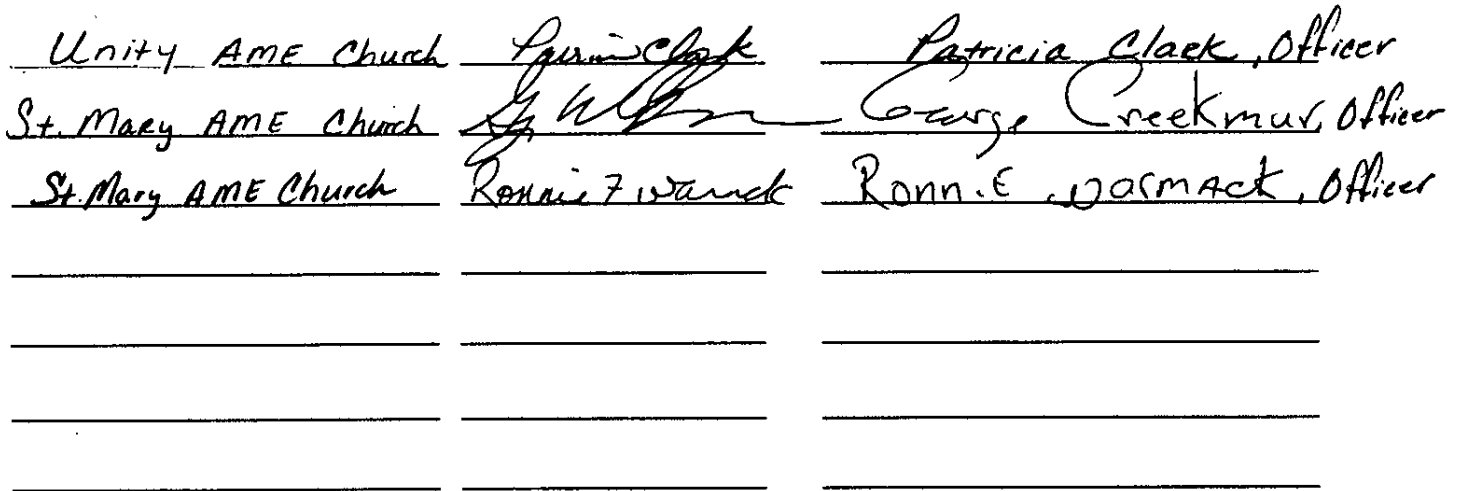 Unity AME Church Patricia Clark Patricia Clark, Officer
St. Mary AME Church George Creekmur, Officer
St. Mary AME Church Ronnie F Warmack Ronnie Warmack, Officer